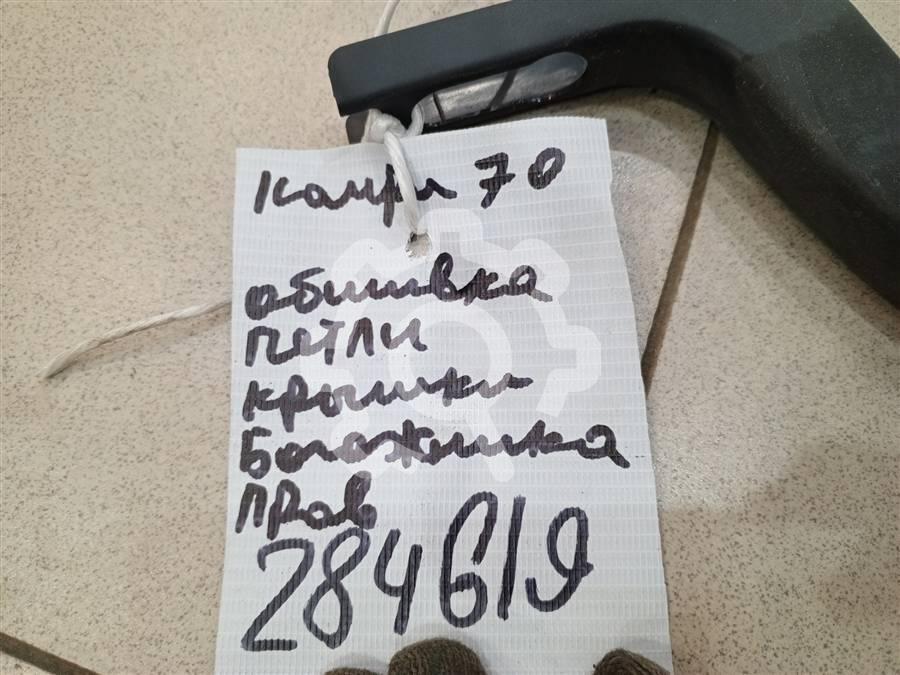 Камри 70
обшивка
петли
крышки
багажника
прав
284619